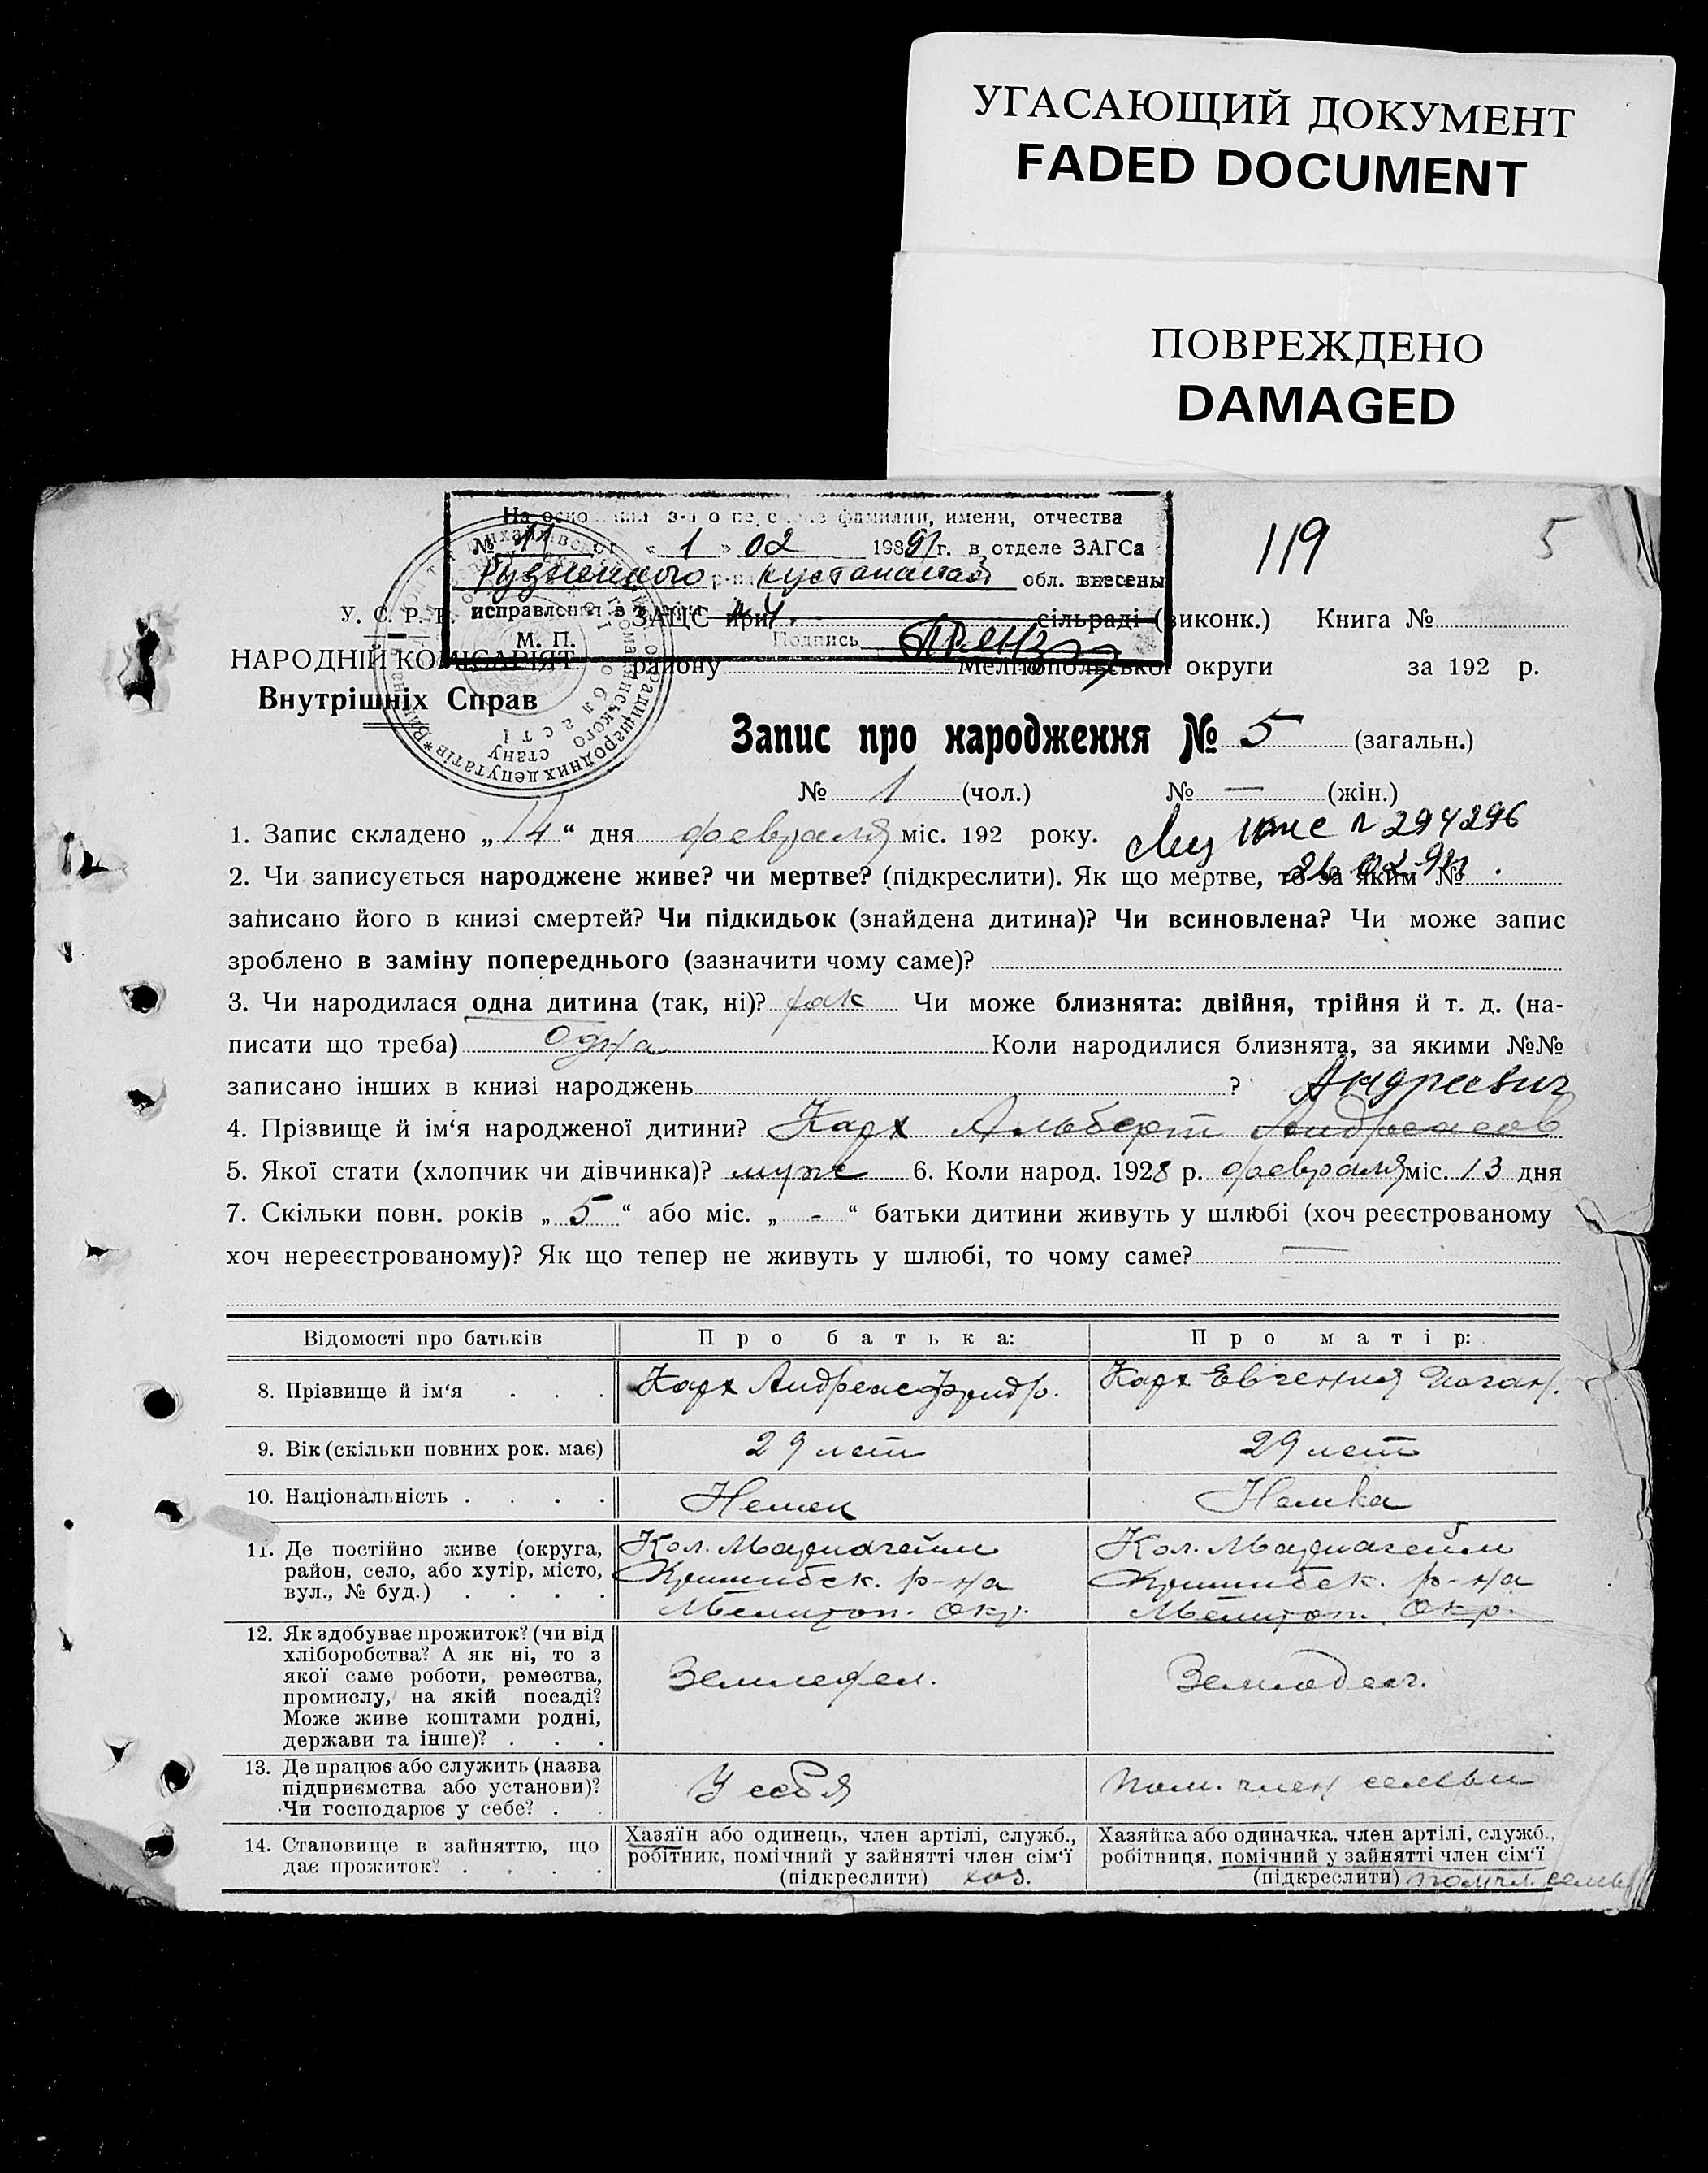 УГАСАЮЩИЙ ДОКУМЕНТ
FADED DOCUMENT
ПОВРЕЖДЕНО
DAMAGED
фамилии, имени, отчества
№ 11 от « 1 » 02 1991 г. в отделе ЗАГСа
р-на обл. внесены
исправления в
М. П. Подпись
119
5
У. С. Р. Р.
НАРОДНІЙ КОМІСАРІЯТ
Внутрішніх Справ
ЗАЦС при сільраді (виконк.) Книга №
району Мелітопольської округи за 192 р.
Запис про народження № 5 (загальн.)
№ 1 (чол.) № — (жін.)
1. Запис складено „ 14 “ дня февраля міс. 192 року.
294296
2. Чи записується народжене живе? чи мертве? (підкреслити). Як що мертве, то за яким №
записано його в книзі смертей? Чи підкидьок (знайдена дитина)? Чи всиновлена? Чи може запис
зроблено в заміну попереднього (зазначити чому саме)?
3. Чи народилася одна дитина (так, ні)? так Чи може близнята: двійня, трійня й т. д. (на-
писати що треба) одна Коли народилися близнята, за якими №№
записано інших в книзі народжень ?
Андреевич
4. Прізвище й ім‘я народженої дитини? Карх Альберт Андреасов
5. Якої стати (хлопчик чи дівчинка)? муж 6. Коли народ. 1928 р. февраля міс. 13 дня
7. Скільки повн. років „ 5 “ або міс. „ - “ батьки дитини живуть у шлюбі (хоч реєстрованому
хоч нереєстрованому)? Як що тепер не живуть у шлюбі, то чому саме? —
Відомості про батьків Про батька: Про матір:
8. Прізвище й ім‘я . . . Карх Андреас Фридр. Карх Евгения Иоган.
9. Вік (скільки повних рок. має) 29 лет 29 лет
10. Національність . . . . Немец Немка
11. Де постійно живе (округа, Кол. Мариагейм Кол. Мариагейм
район, село, або хутір, місто, Пришибск. р-на Пришибск. р-на
вул., № буд.) . . . . Мелитоп. Окр. Мелитоп. Окр.
12. Як здобуває прожиток? (чи від
хліборобства? А як ні, то з
якої саме роботи, ремества, Земледел. Земледел.
промислу, на якій посаді?
Може живе коштами родні,
держави та інше)? . . .
13. Де працює або служить (назва
підприємства або установи)? У себя Пом. член семьи
Чи господарює у себе? . .
14. Становище в зайняттю, що
дає прожиток? . . . .
Хазяїн або одинець, член артілі, служб.,
робітник, помічний у зайнятті член сім‘ї
(підкреслити) хоз.
Хазяйка або одиначка, член артілі, служб.,
робітниця, помічний у зайнятті член сім‘ї
(підкреслити) пом. чл. семьи